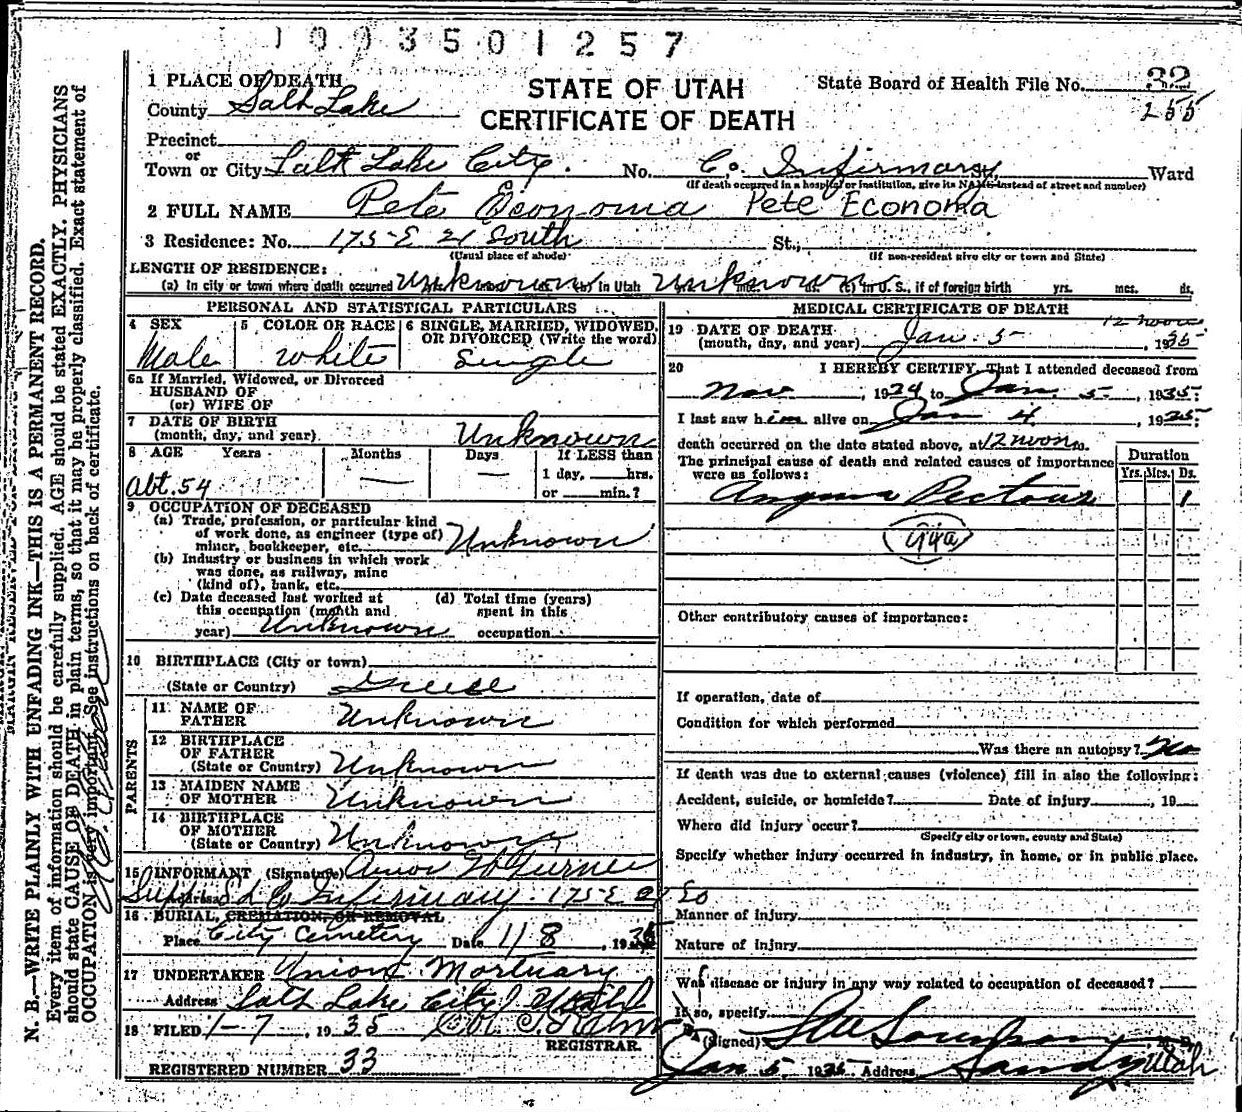 1003501257
STATE OF UTAH
CERTIFICATE OF DEATH
State Board of Health File No. 32
255
1 PLACE OF DEATH
County Salt Lake
Precinct
or
Town or City Salt Lake City. No. Co. Infirmary, Ward
(If death occurred in a hospital or institution, give its NAME instead of street and number)
2 FULL NAME Pete Economa Pete Economa
3 Residence: No. 175-E 21 South St.,
(Usual place of abode) (If non-resident give city or town and State)
LENGTH OF RESIDENCE:
(a) In city or town where death occurred Unknown (b) in Utah Unknown (c) in U. S., if of foreign birth yrs. mos. ds.
PERSONAL AND STATISTICAL PARTICULARS
4 SEX
Male
5 COLOR OR RACE
White
6 SINGLE, MARRIED, WIDOWED, OR DIVORCED (Write the word)
Single
6a If Married, Widowed, or Divorced
HUSBAND OF
(or) WIFE OF
7 DATE OF BIRTH
(month, day, and year) Unknown
8 AGE Years Months Days If LESS than
1 day, hrs.
or min.?
Abt. 54 — —
9 OCCUPATION OF DECEASED
(a) Trade, profession, or particular kind
of work done, as engineer (type of)
miner, bookkeeper, etc. Unknown
(b) Industry or business in which work
was done, as railway, mine
(kind of), bank, etc.
(c) Date deceased last worked at
this occupation (month and
year) Unknown
(d) Total time (years)
spent in this
occupation
10 BIRTHPLACE (City or town)
(State or Country) Greece
PARENTS
11 NAME OF
FATHER Unknown
12 BIRTHPLACE
OF FATHER
(State or Country) Unknown
13 MAIDEN NAME
OF MOTHER Unknown
14 BIRTHPLACE
OF MOTHER
(State or Country) Unknown
15 INFORMANT (Signature)
Address S.L. Co Infirmary 175-E 21 So
16 BURIAL, CREMATION, OR REMOVAL
Place City Cemetery Date 1 8, 1935
17 UNDERTAKER Union Mortuary
Address Salt Lake City, Utah
18 FILED 1-7, 1935
REGISTRAR.
REGISTERED NUMBER 33
MEDICAL CERTIFICATE OF DEATH
12 noon
19 DATE OF DEATH
(month, day, and year) Jan. 5, 1935
20 I HEREBY CERTIFY, That I attended deceased from
Nov, 1934 to Jan. 5, 1935;
I last saw him alive on Jan 4, 1935;
death occurred on the date stated above, at 12 noon m.
The principal cause of death and related causes of importance
were as follows:
Duration
Yrs. Mos. Ds.
Angina Pectoris 1
94a
Other contributory causes of importance:
If operation, date of
Condition for which performed
Was there an autopsy? No
If death was due to external causes (violence) fill in also the following:
Accident, suicide, or homicide? Date of injury, 19
Where did injury occur?
(Specify city or town, county and State)
Specify whether injury occurred in industry, in home, or in public place.
Manner of injury
Nature of injury
Was disease or injury in any way related to occupation of deceased?
If so, specify
(Signed) M. D.
Jan 5, 1935 Address Sandy Utah
N. B.—WRITE PLAINLY WITH UNFADING INK—THIS IS A PERMANENT RECORD.
Every item of information should be carefully supplied. AGE should be stated EXACTLY. PHYSICIANS
should state CAUSE OF DEATH in plain terms, so that it may be properly classified. Exact statement of
OCCUPATION is very important. See instructions on back of certificate.